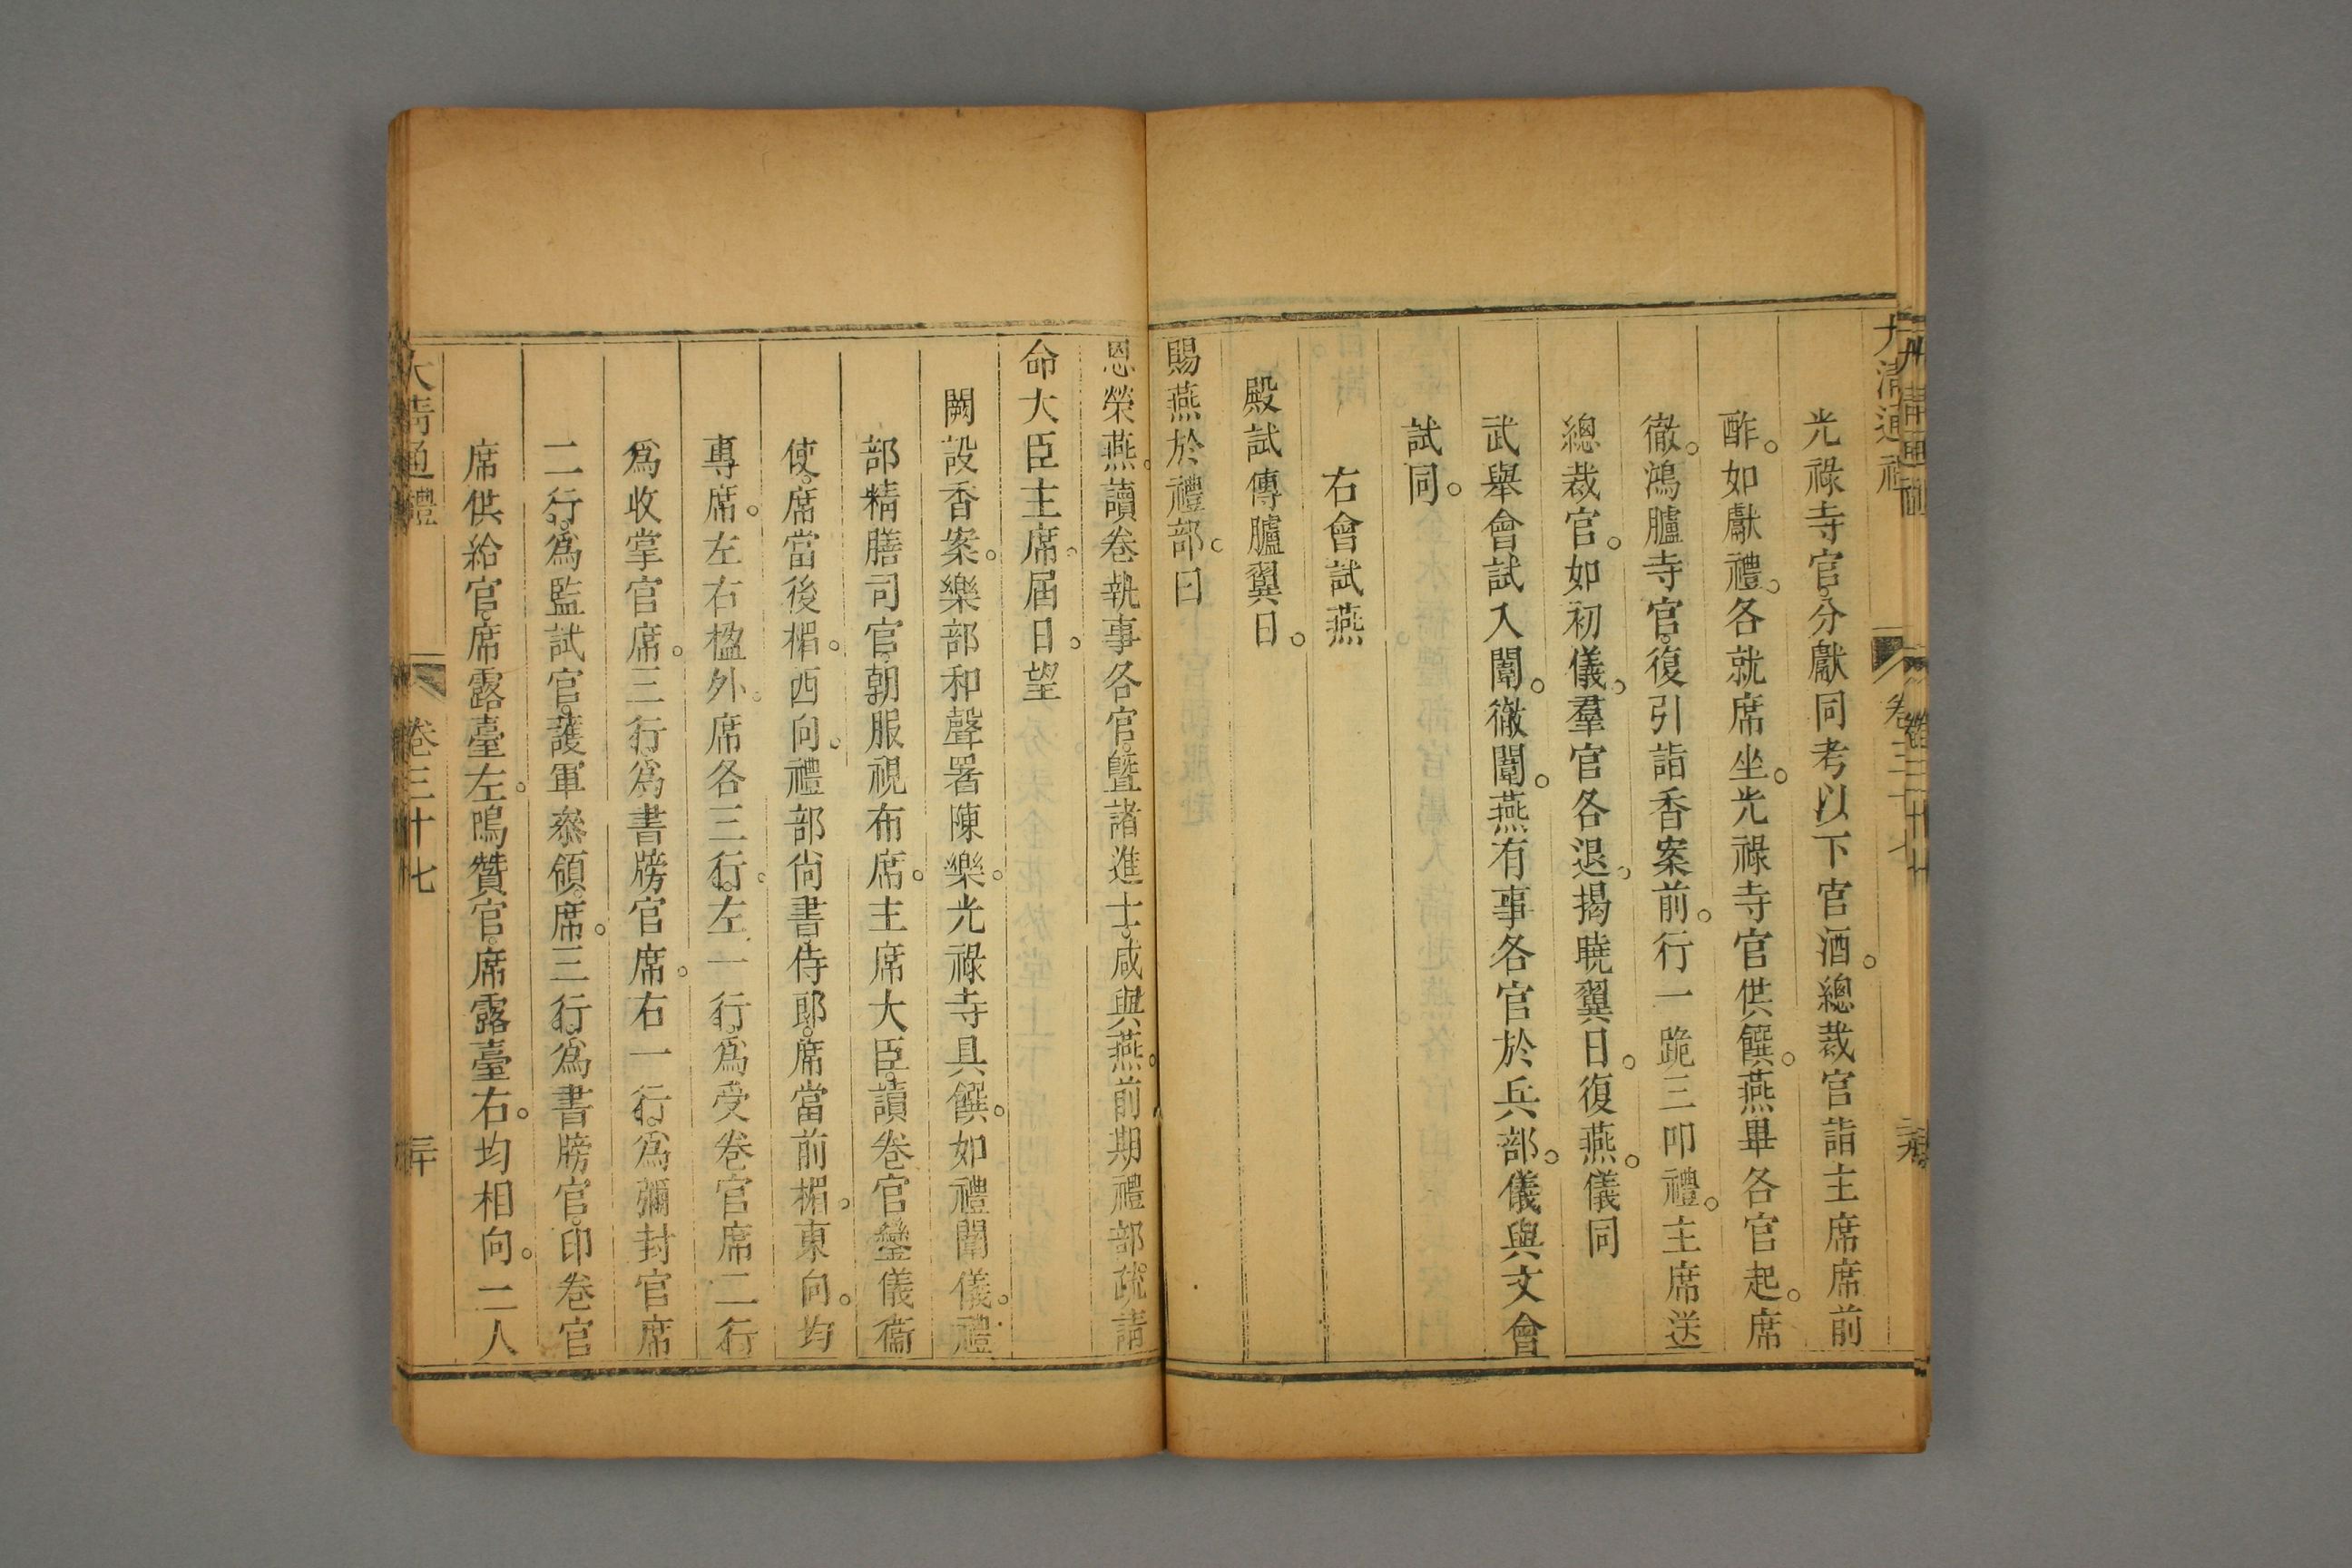 光祿寺官。分獻同考以下官酒。總裁官詣主席席前
酢。如獻禮。各就席坐。光祿寺官供饌。燕畢各官起。席
徹。鴻臚寺官。復引詣香案前。行一跪三叩禮。主席送
總裁官。如初儀。羣官各退。揭曉翼日。復燕。儀同
武舉會試入闈。徹闈。燕有事各官於兵部。儀與文會
試同。
右會試燕
殿試傳臚翼日。
賜燕於禮部。曰
恩榮燕。讀卷執事各官。曁諸進士。咸與燕。前期禮部疏請
命大臣主席。屆日。望
闕設香案。樂部和聲署陳樂。光祿寺具饌。如禮闈儀。禮
部精膳司官。朝服視布席。主席大臣。讀卷官鑾儀衞
使。席當後楣。西向。禮部尙書侍郎。席當前楣。東向。均
專席。左右楹外。席各三行。左一行。爲受卷官席二行
爲收掌官席。三行。爲書牓官席。右一行。爲彌封官席
二行。爲監試官。護軍叅領。席。三行。爲書牓官。印卷官
席供給官。席露臺左。鳴贊官。席露臺右。均相向。二人
大清通禮
卷三十七
三十